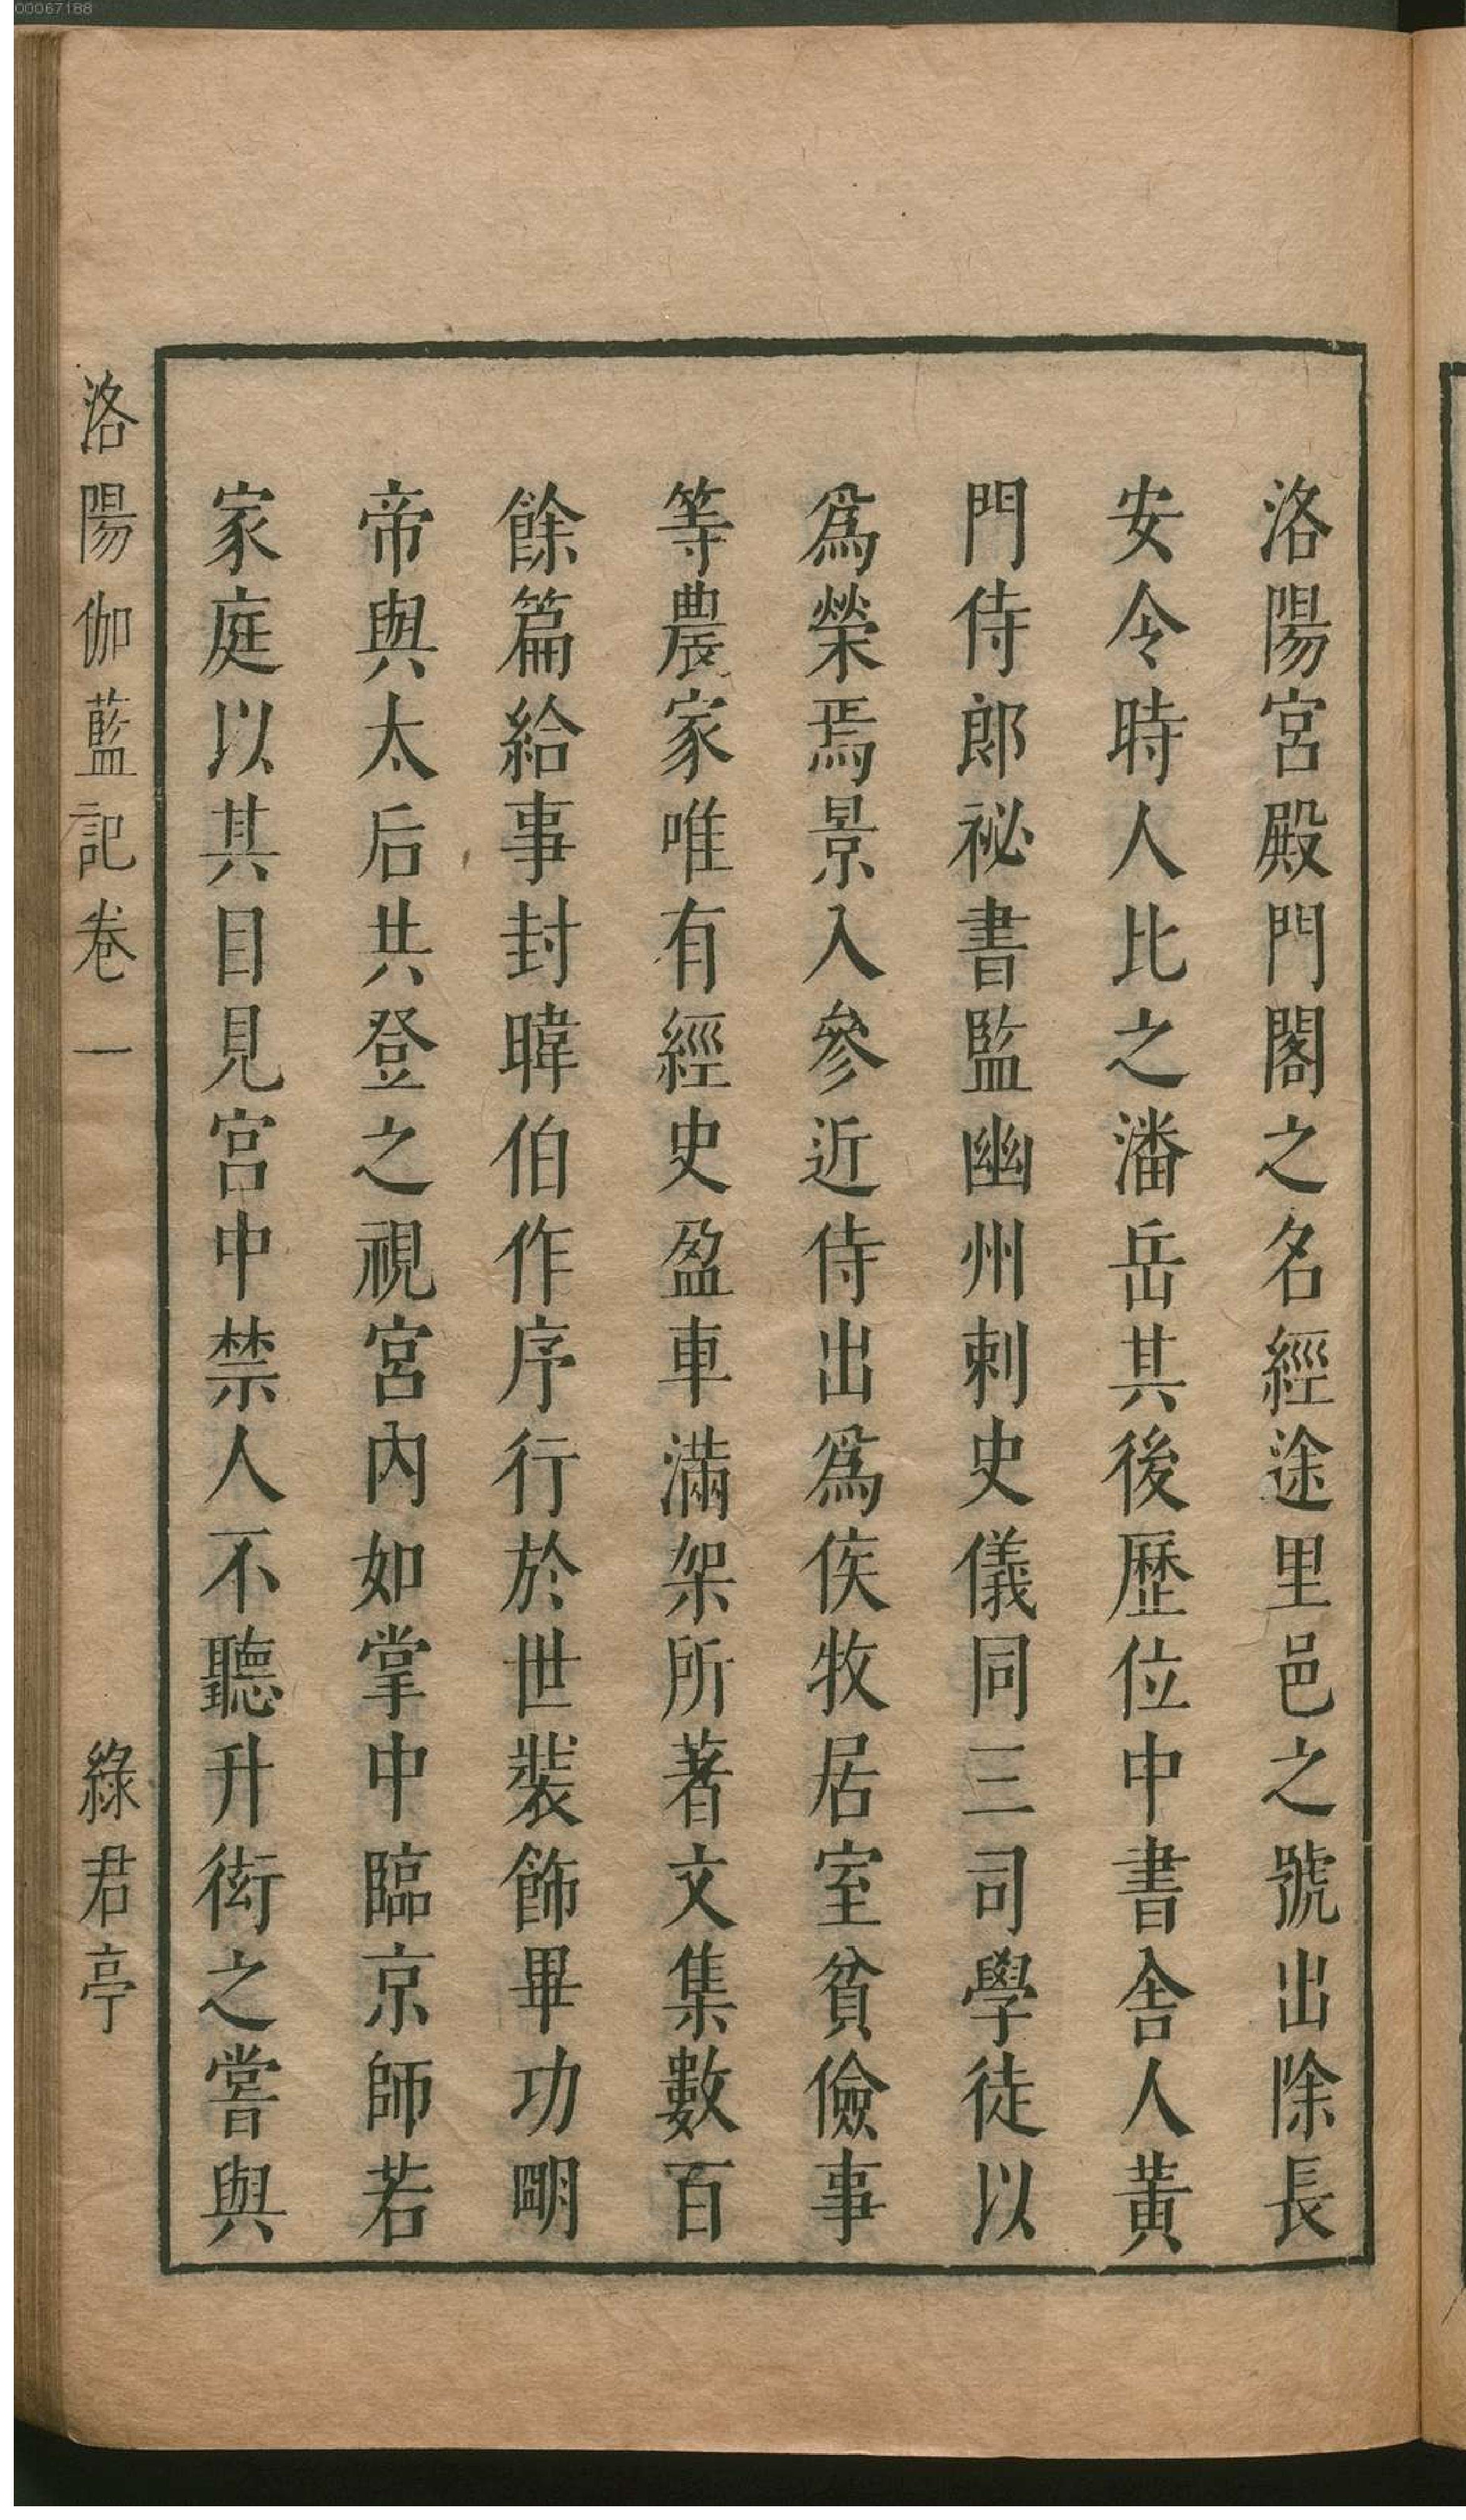 00067188
洛陽宮殿門閣之名經途里邑之號出除長
安令時人比之潘岳其後歷位中書舍人黃
門侍郎祕書監幽州刺史儀同三司學徒以
爲榮焉景入參近侍出爲侯牧居室貧儉事
等農家唯有經史盈車滿架所著文集數百
餘篇給事封暐伯作序行於世裝飾畢功明
帝與太后共登之視宮內如掌中臨京師若
家庭以其目見宮中禁人不聽升衒之嘗與
洛陽伽藍記卷一
綠君亭